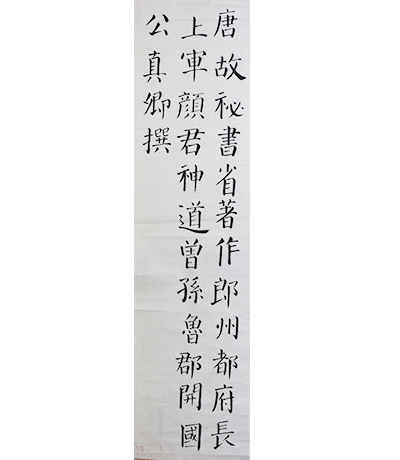 唐故祕書省著作郎州都府長
上軍顔君神道曽孫魯郡開國
公真卿撰